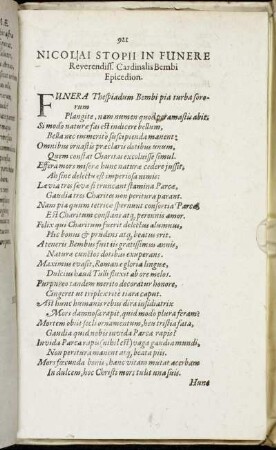 921
NICOLAI STOPII IN FUNERE
Reverendiss. Cardinalis Bembi
Epicedion.
FUNERA Thespiadum Bembi pia turba soro-
rum
Plangite, nam numen quod peramastis abit.
Si modo naturæ fas est indicere bellum,
Bella nec immeritò suscipienda manent:
Omnibus ornastis præclaris dotibus unum,
Quem constat Charitas excoluisse simul.
Effera mors miseræ hunc naturæ cedere jussit,
An sine delectu est imperiosa nimis:
Læviâ tres sævæ si truncant stamina Parcæ,
Gaudia tres Charites non peritura parant.
Nam pia quàm tetricæ spernunt consortia Parcæ,
Est Charitum constans atq, perennis amor.
Felix qui Charitum fuerit delectus alumnus,
Hic bonus & prudens atq, beatus erit.
A teneris Bembus fuit his gratissimus annis,
Naturæ cunctos dotibus exuperans.
Maximus evasit, Romanæ gloria linguæ,
Dulcius haud Tulli fluxit ab ore melos.
Purpureo tandem meritò decoratur honore,
Cingeret ut triplex trite tiara caput.
Ast hunc humanis rebus dira insidiatrix
Mors damnosa rapit, quid modò plura feram?
Mortem obiit sæcli ornamentum, heu tristia fata,
Gaudia quid nobis invida Parca rapis?
Invida Parca rapis (nihil est) vaga gaudia mundi,
Non peritura manent atq, beata piis.
Mors fœcunda bonis, hanc vitam mutat acerbam
In dulcem, hoc Christi mors tulit una suis.
Hunc